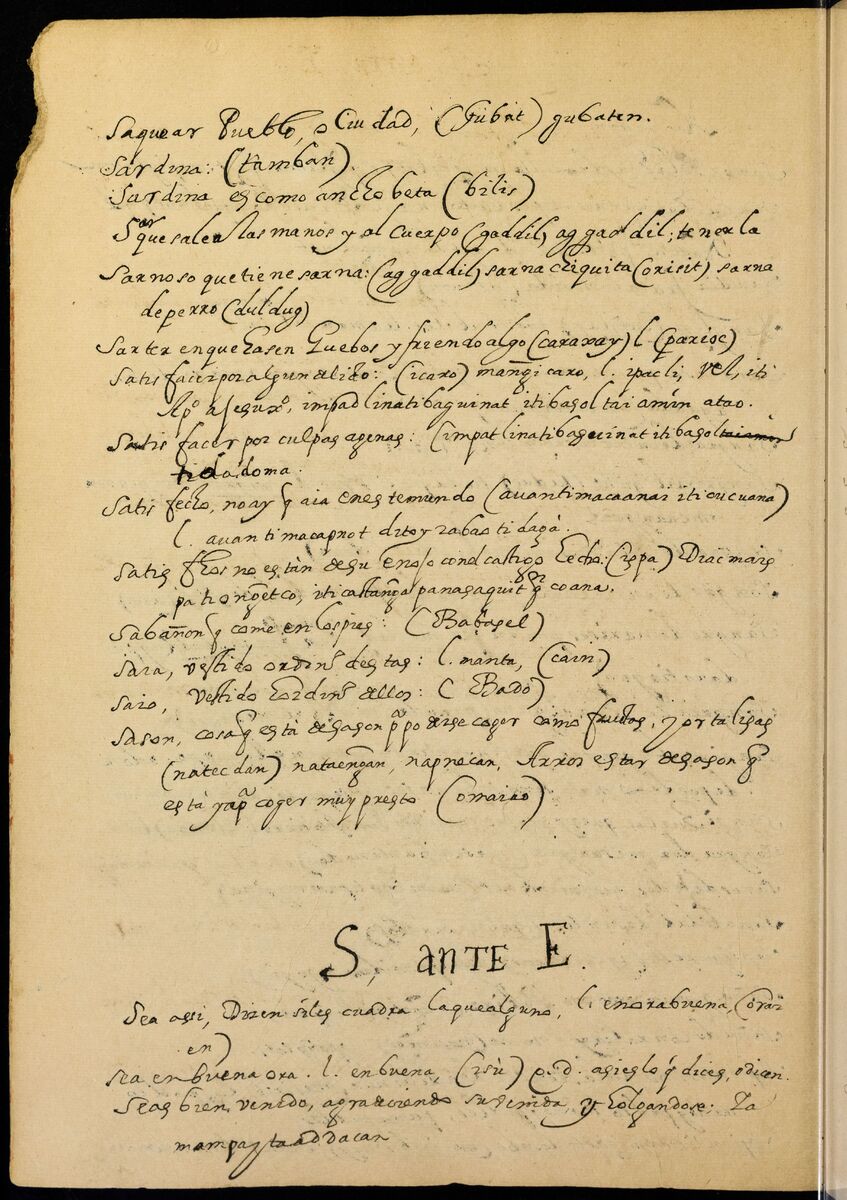 Saquear Pueblo, o Ciudad, (Gubat) gubaten.
Sardina: (tamban)
Sardina es como anchobeta (bilis)
Sar que sale a las manos y al cuerpo (gaddil) aggaddil; tenerla
Sarnoso que tiene sarna: (aggaddil) sarna chiquita (orisit) sarna
de perro (duldug)
Sarten en que hasen huebos y friendo algo (caraxay) l. (parioc)
Satisfacer por algun delito: (icaro) icaro, l. ipacli, vel, iti
Apo a Jesuxo, impadlinatibaguinat itibasol tai amin atao.
Satisfacer por culpas agenas: (impatlinatibaguinat itibasol
tidadoma.
Satisfecho, no ay q aia en este mundo (avantimacaanai iti cucuana)
l. avantimacapnot ditoy rabao ti daga.
no estan de su enojo con el castigo hecho: (ispa)
pati ongetco, iti panasaquit coana.
Sabañon q come en los pies: (Babasel)
Saia, vestido ordino destas: l. manta, (cain)
Saio, vestido ordino dellos: (Bado)
Sason, cosa q està de sason pa poderse coger como frutas, y ortalisas
(natecdan) nataengan, napnecan, Arros estar de sason q
està ya pa coger muy presto (omairo)
S, ANTE E.
Sea assi, Dizen si les cuadra la que alguno, l. enorabuena, (oray
en)
Sea en buena ora. l. en buena, (isù) q.d. asi es lo q dices, o dicen.
Seas bien venido, agradeciendo su venida, y holgandose: Ia
mampay ta addacan